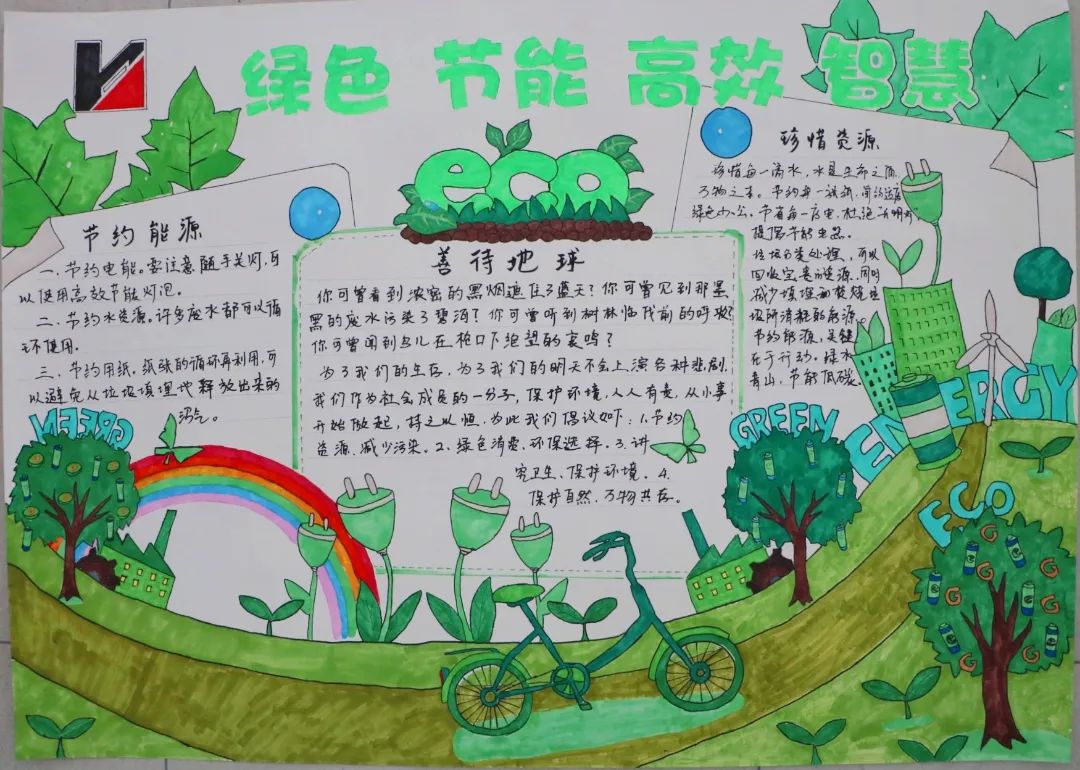 绿色 节能 高效 智慧
eco
节约能源
一、节约电能。要注意随手关灯,可
以使用高效节能灯泡。
二、节约水资源。许多废水都可以循
环使用。
三、节约用纸,纸张的循环再利用,可
以避免从垃圾填埋地释放出来的
沼气。
善待地球
你可曾看到浓密的黑烟遮住了蓝天?你可曾见到那黑
黑的废水污染了碧河?你可曾听到树林临伐前的呼救?
你可曾闻到鸟儿在枪口下绝望的哀鸣?
为了我们的生存,为了我们的明天不会上演各种悲剧,
我们作为社会成员的一分子,保护环境,人人有责,从小事
开始做起,持之以恒,为此我们倡议如下:1.节约
资源,减少污染。2.绿色消费,环保选择。3.讲
究卫生、保护环境。4.
保护自然,万物共存。
珍惜资源
珍惜每一滴水,水是生命之源,
万物之本。节约每一张纸,
绿色办公。节省每一度电,杜绝
提倡节能电器。
垃圾分类处理,可以
回收宝贵的资源,同时
减少填埋和焚烧垃
圾所消耗的能源。
节约能源,关键
在于行动,绿水
青山,节能低碳。
GREEN
GREEN
ENERGY
ECO